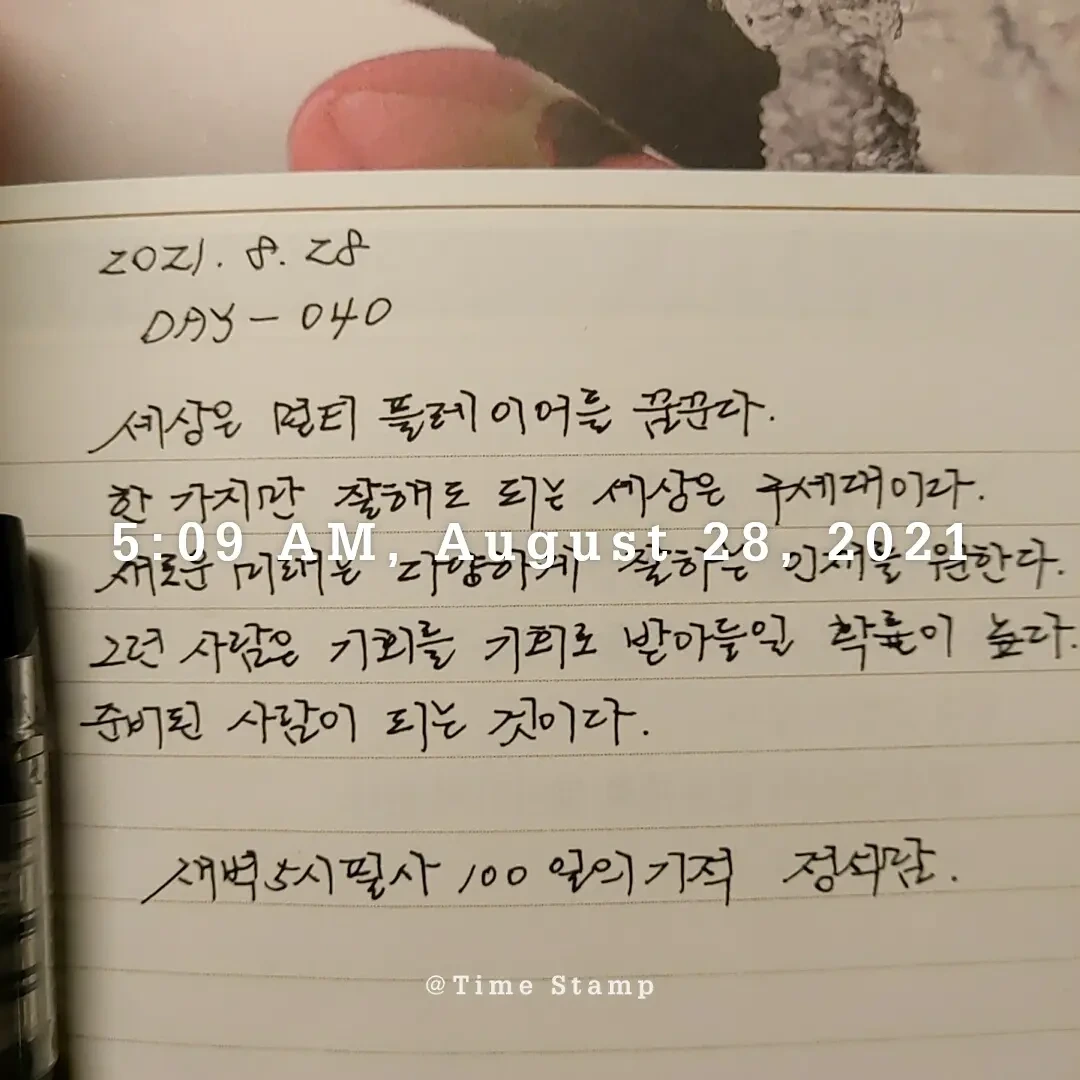 2021. 8. 28
DAY - 040
세상은 멀티 플레이어를 꿈꾼다.
한 가지만 잘해도 되는 세상은 구세대이다.
5:09 AM, August 28, 2021
새로운 미래는 다양하게 잘하는 인재를 원한다.
그런 사람은 기회를 기회로 받아들일 확률이 높다.
준비된 사람이 되는 것이다.
새벽5시필사 100일의기적
@Time Stamp